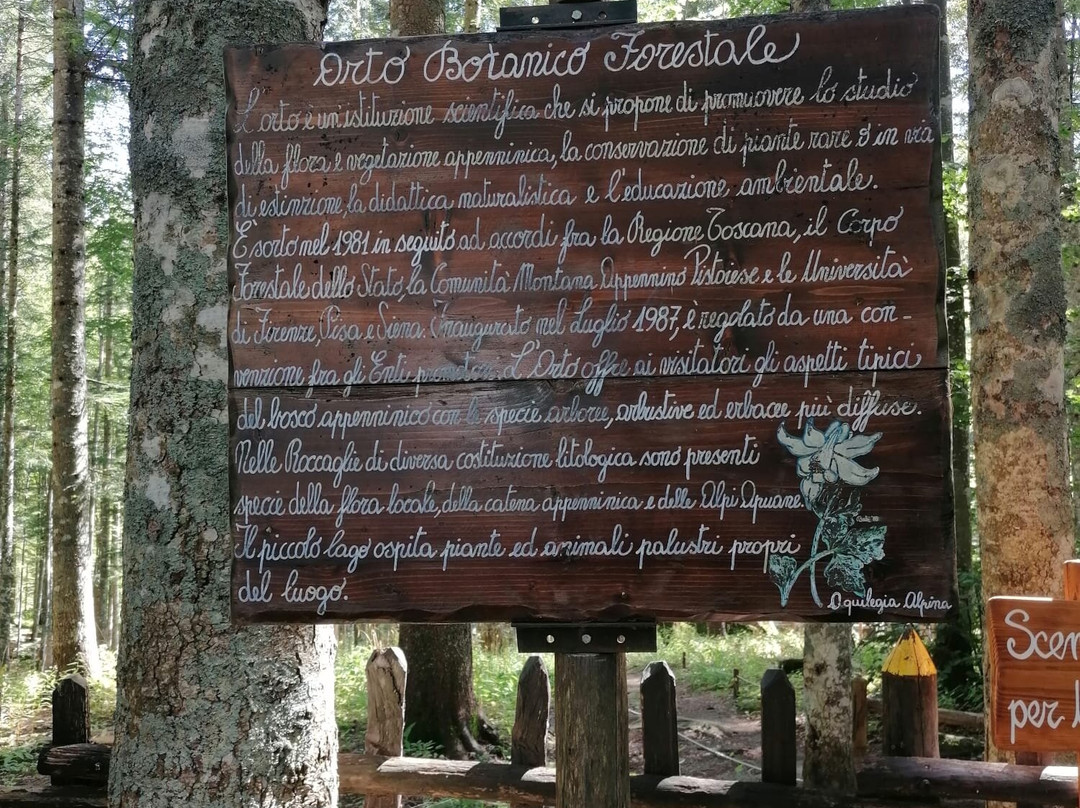 Orto Botanico Forestale
L'orto è un'istituzione scientifica che si propone di promuovere lo studio
della flora e vegetazione appenninica, la conservazione di piante rare o in via
di estinzione, la didattica naturalistica e l'educazione ambientale.
È sorto nel 1981 in seguito ad accordi fra la Regione Toscana, il Corpo
Forestale dello Stato, la Comunità Montana Appennino Pistoiese e le Università
di Firenze, Pisa e Siena. Inaugurato nel Luglio 1987, è regolato da una con-
venzione fra gli Enti promotori. L'Orto offre ai visitatori gli aspetti tipici
del bosco appenninico con le specie arboree, arbustive ed erbacee più diffuse.
Nelle Roccaglie di diversa costituzione litologica sono presenti
specie della flora locale, della catena appenninica e delle Alpi Apuane.
Il piccolo lago ospita piante ed animali palustri propri
del luogo.
Aquilegia Alpina
Scen
per l